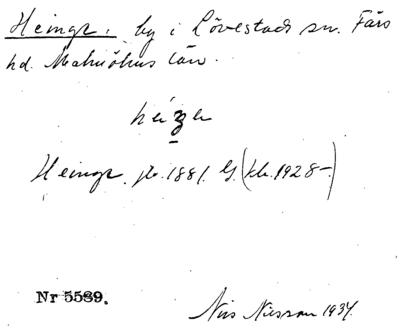 Heinge. by i Lövestads sn. Färs
hd. Malmöhus län.
Heinge. jb. 1881. G. (kb. 1928-)
Nr 5589.
Nils Nilsson 1934.